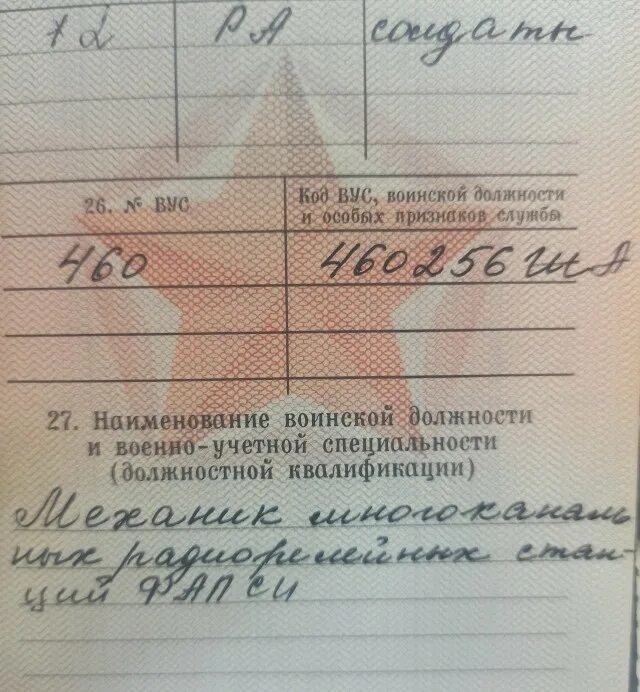 12 РА солдаты
26. № ВУС
Код ВУС, воинской должности
и особых признаков службы
460 460256 гш А
27. Наименование воинской должности
и военно-учетной специальности
(должностной квалификации)
Механик многоканаль
ных радиорелейных стан-
ций ФАПСИ